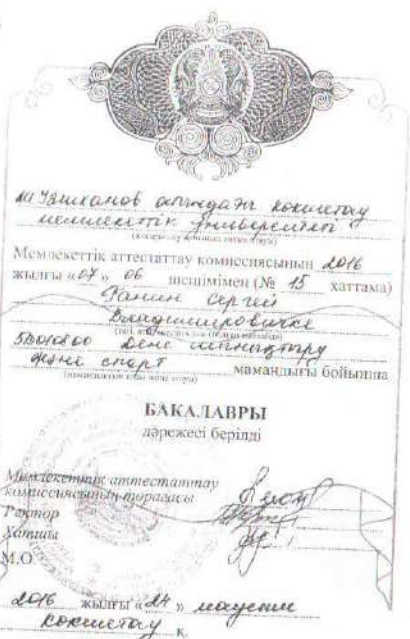 Ш Уәлиханов атындағы Көкшетау
мемлекеттік университеті
Мемлекеттік аттестаттау комиссиясының 2016
жылғы «07» 06 шешімімен (№ 15 хаттама)
Сергей
Владимировичке
5В010800 Дене шынықтыру
және спорт мамандығы бойынша
БАКАЛАВРЫ
дәрежесі берілді
Мемлекеттік аттестаттау
комиссиясының төрағасы
Ректор
Хатшы
М.О.
2016 жылғы «24» маусым
Көкшетау қ.